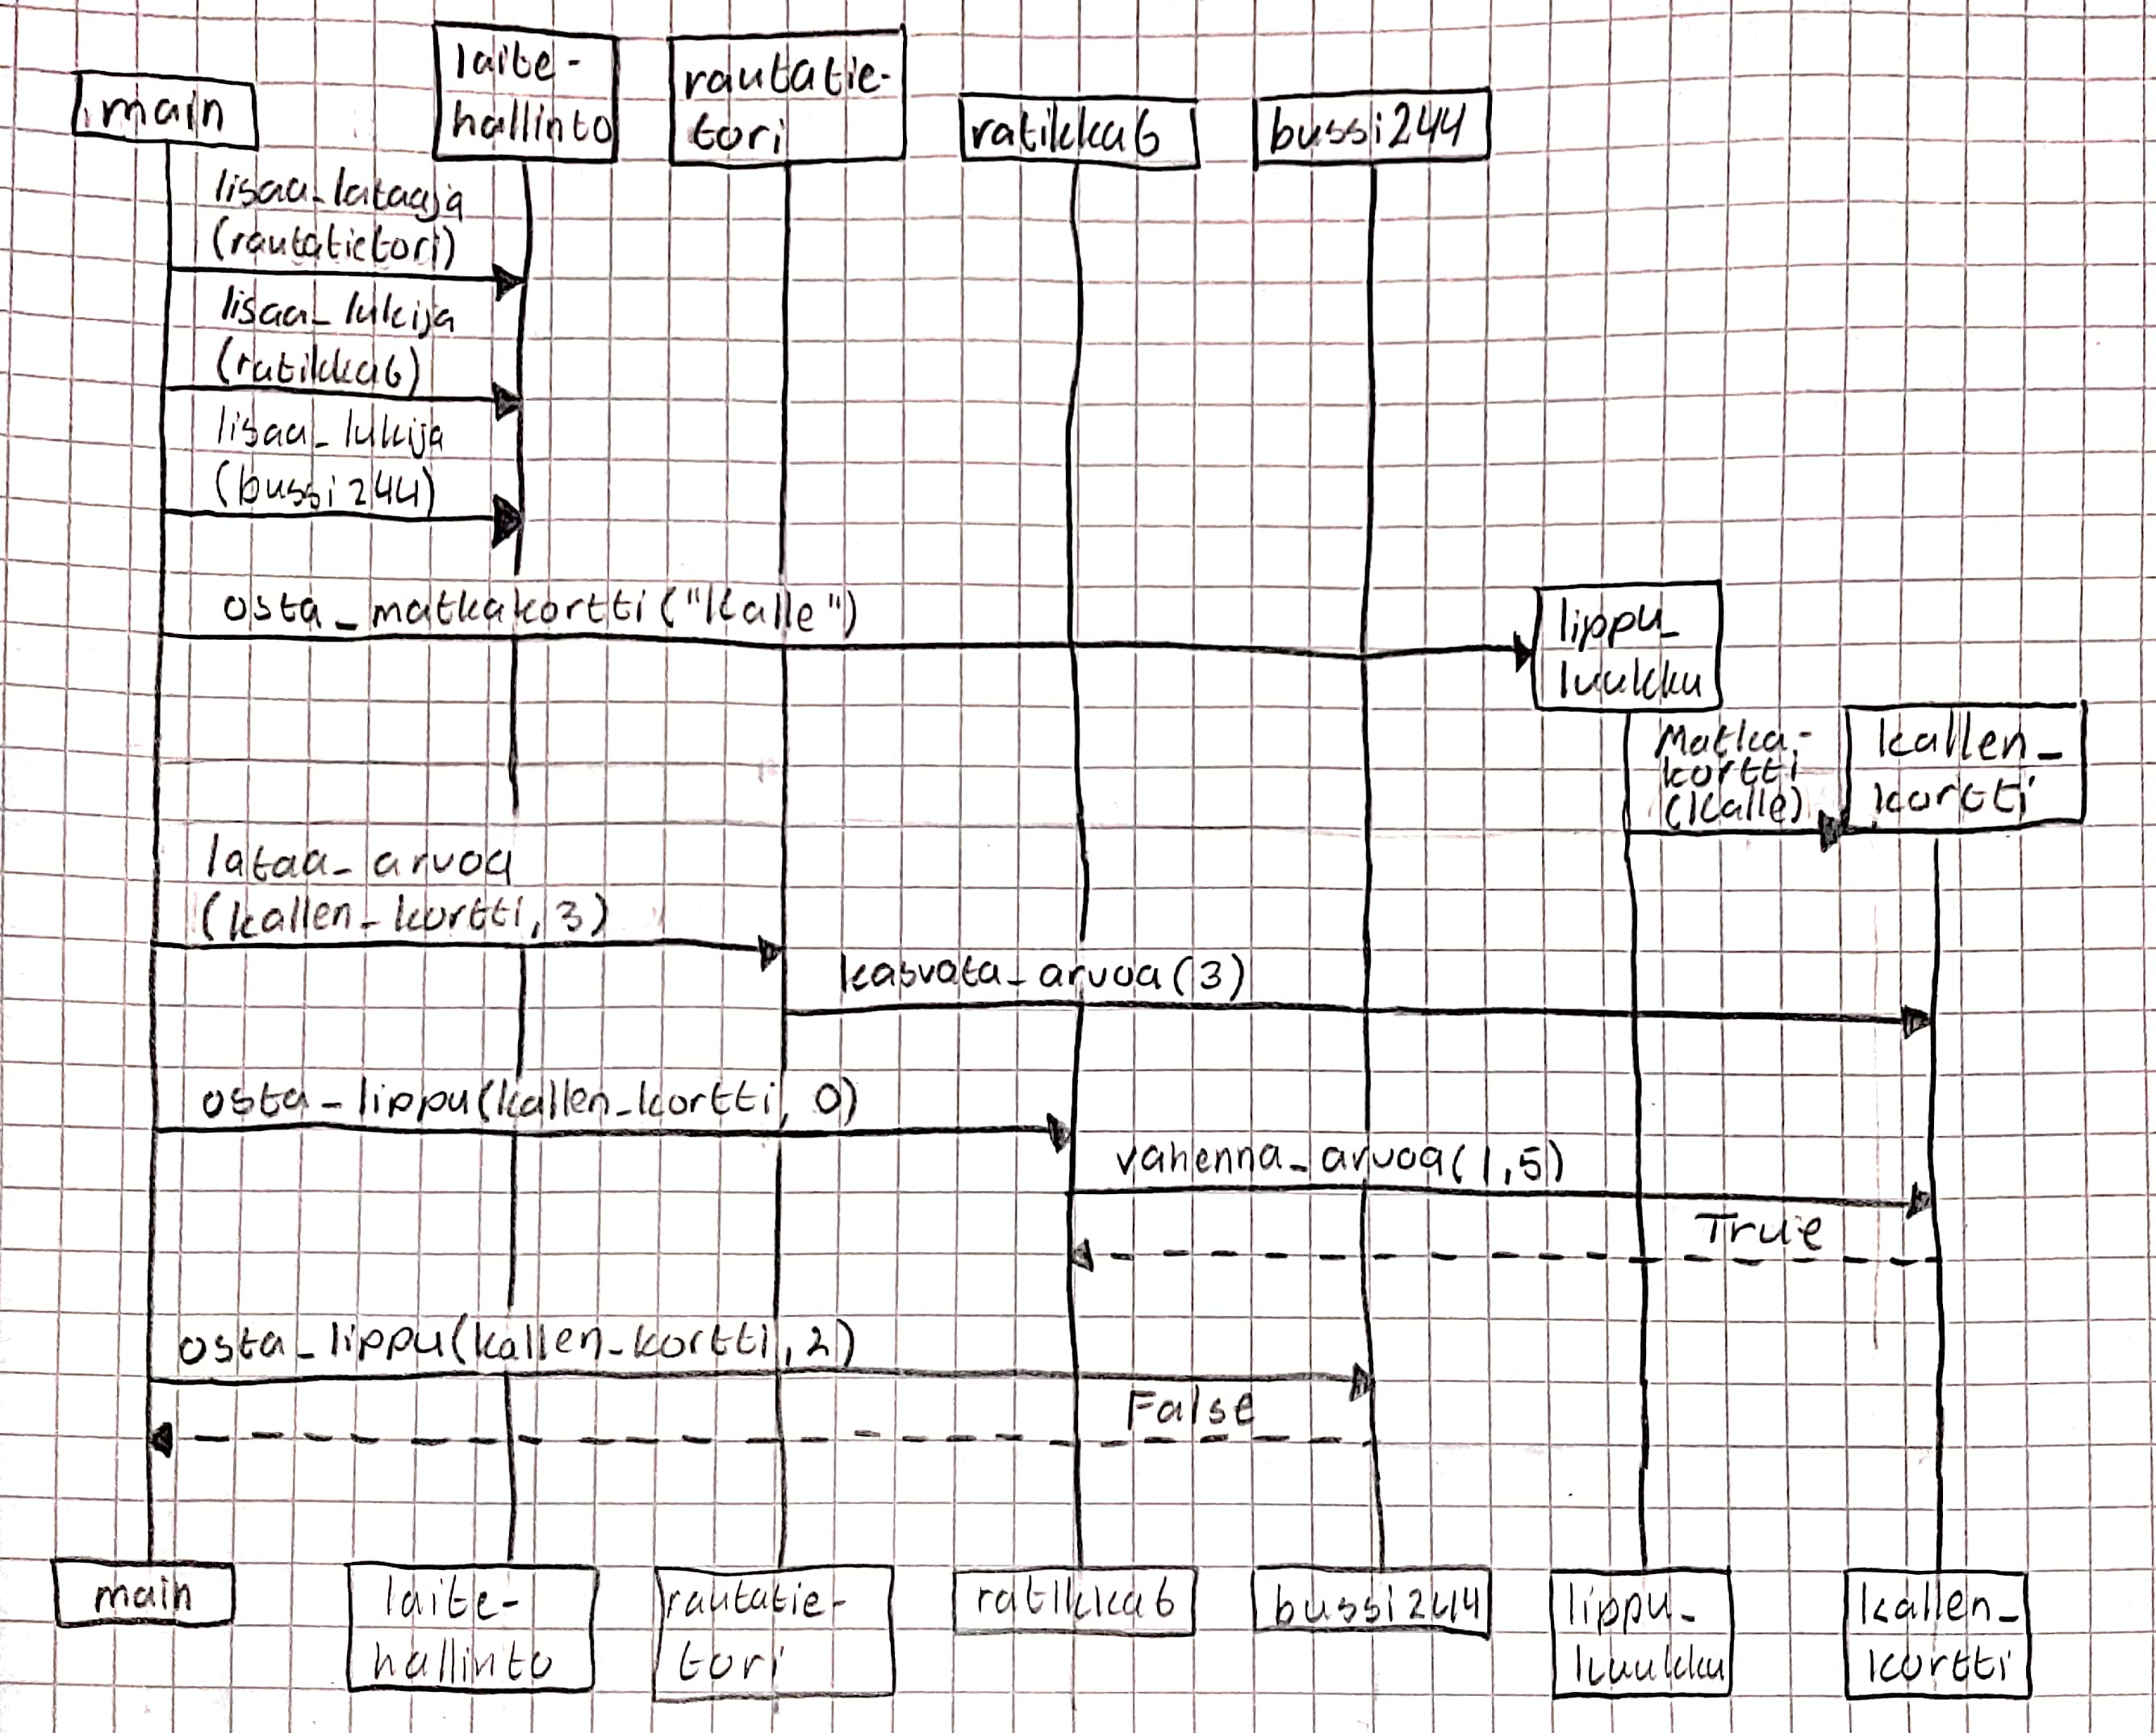 main
laite-
hallinto
rautatie-
tori
ratikka6
bussi244
lisaa_lataaja
(rautatietori)
lisaa_lukija
(ratikka6)
lisaa_lukija
(bussi244)
osta_matkakortti("Kalle")
lippu_
luukku
Matka-
kortti
(Kalle)
kallen_
kortti
lataa_arvoa
(kallen_kortti, 3)
kasvata_arvoa(3)
osta_lippu(kallen_kortti, 0)
vahenna_arvoa(1,5)
True
osta_lippu(kallen_kortti, 2)
False
main
laite-
hallinto
rautatie-
tori
ratikka6
bussi244
lippu_
luukku
kallen_
kortti